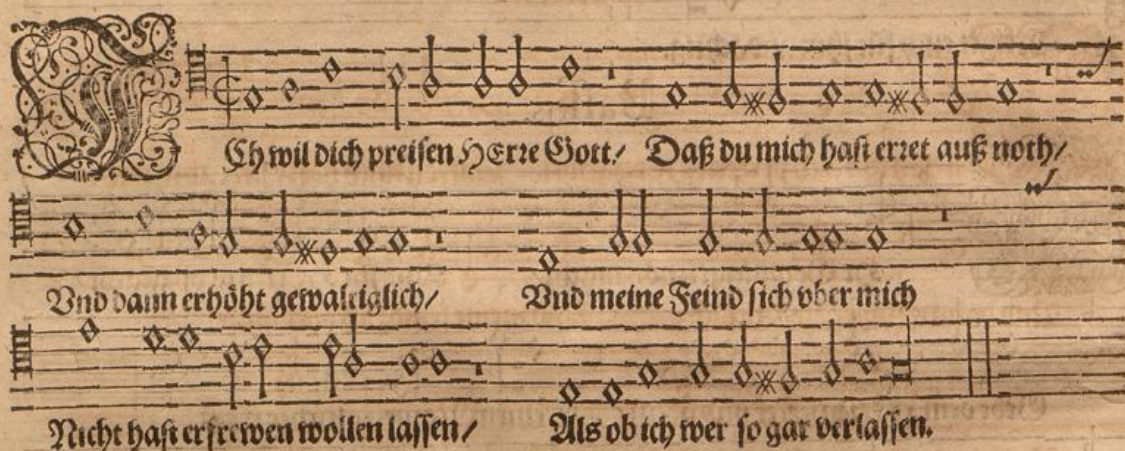 ICh wil dich preisen HErre Gott/ Daß du mich hast erret auß noth/
Vnd dann erhöht gewaltiglich/ Vnd meine Feind sich vber mich
Nicht hast erfrewen wollen lassen/ Als ob ich wer so gar verlassen.